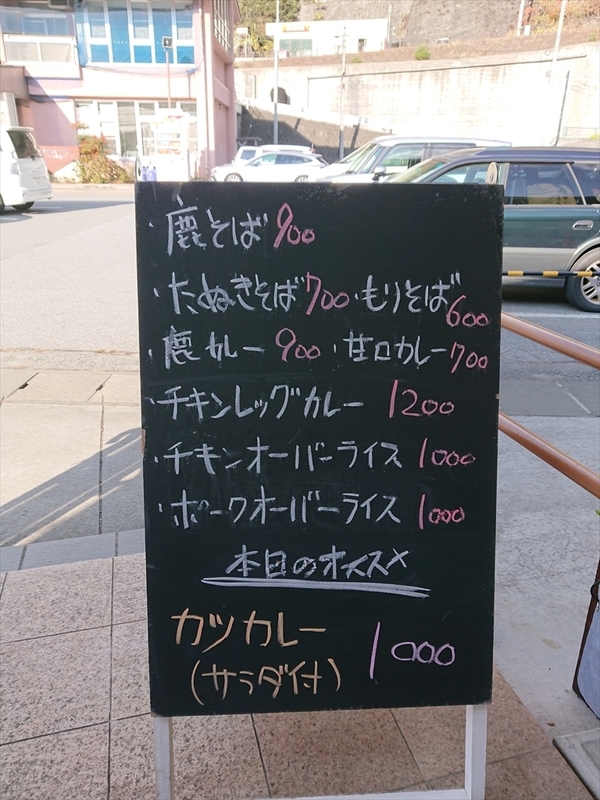 ・鹿そば 900
・たぬきそば 700 ・もりそば 600
・鹿カレー 900 ・甘口カレー 700
・チキンレッグカレー 1200
・チキンオーバーライス 1000
・ポークオーバーライス 1000
本日のオススメ
カツカレー 1000
(サラダ付)